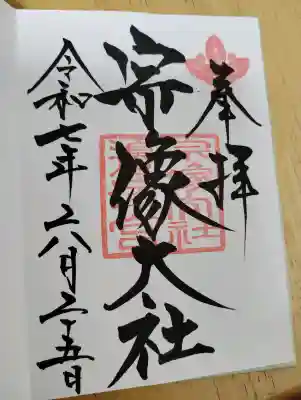 奉拝
宗像大社
令和七年六月二十五日